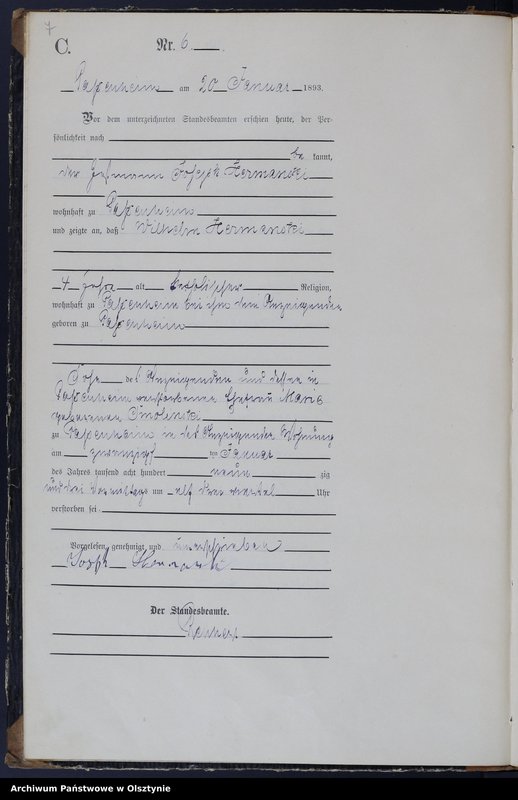 7
C.
Nr. 6
am 20 Januar 1893.
Vor dem unterzeichneten Standesbeamten erschien heute, der Per-
sönlichkeit nach
be kannt,
der Joseph Hermanski
wohnhaft zu
und zeigte an, daß Wilhelm Hermanski
4 Jahre alt, katholischer Religion,
wohnhaft zu bei ihm dem Anzeigenden
geboren zu
Sohn des Anzeigenden und dessen in
verstorbenen Ehefrau Marie
geborenen Smolenski
zu in des Anzeigenden Wohnung
am zwanzigsten Januar
des Jahres tausend acht hundert neun zig
und drei Vormittags um elf drei viertel Uhr
verstorben sei.
Vorgelesen, genehmigt und unterschrieben
Der Standesbeamte.
Archiwum Państwowe w Olsztynie